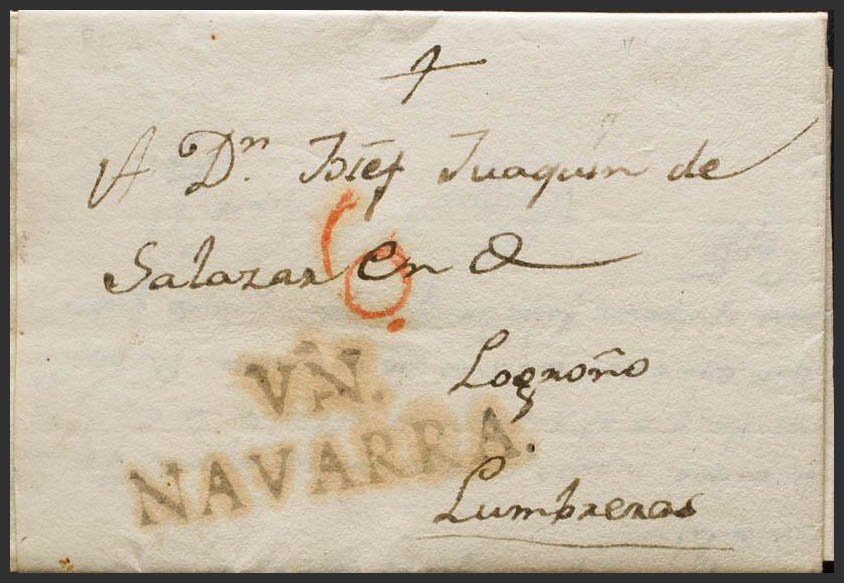 A Dn. Jōsef Juaquin de
Salazar en &
6.
Logroño
VN.
NAVARRA.
Lumbreras